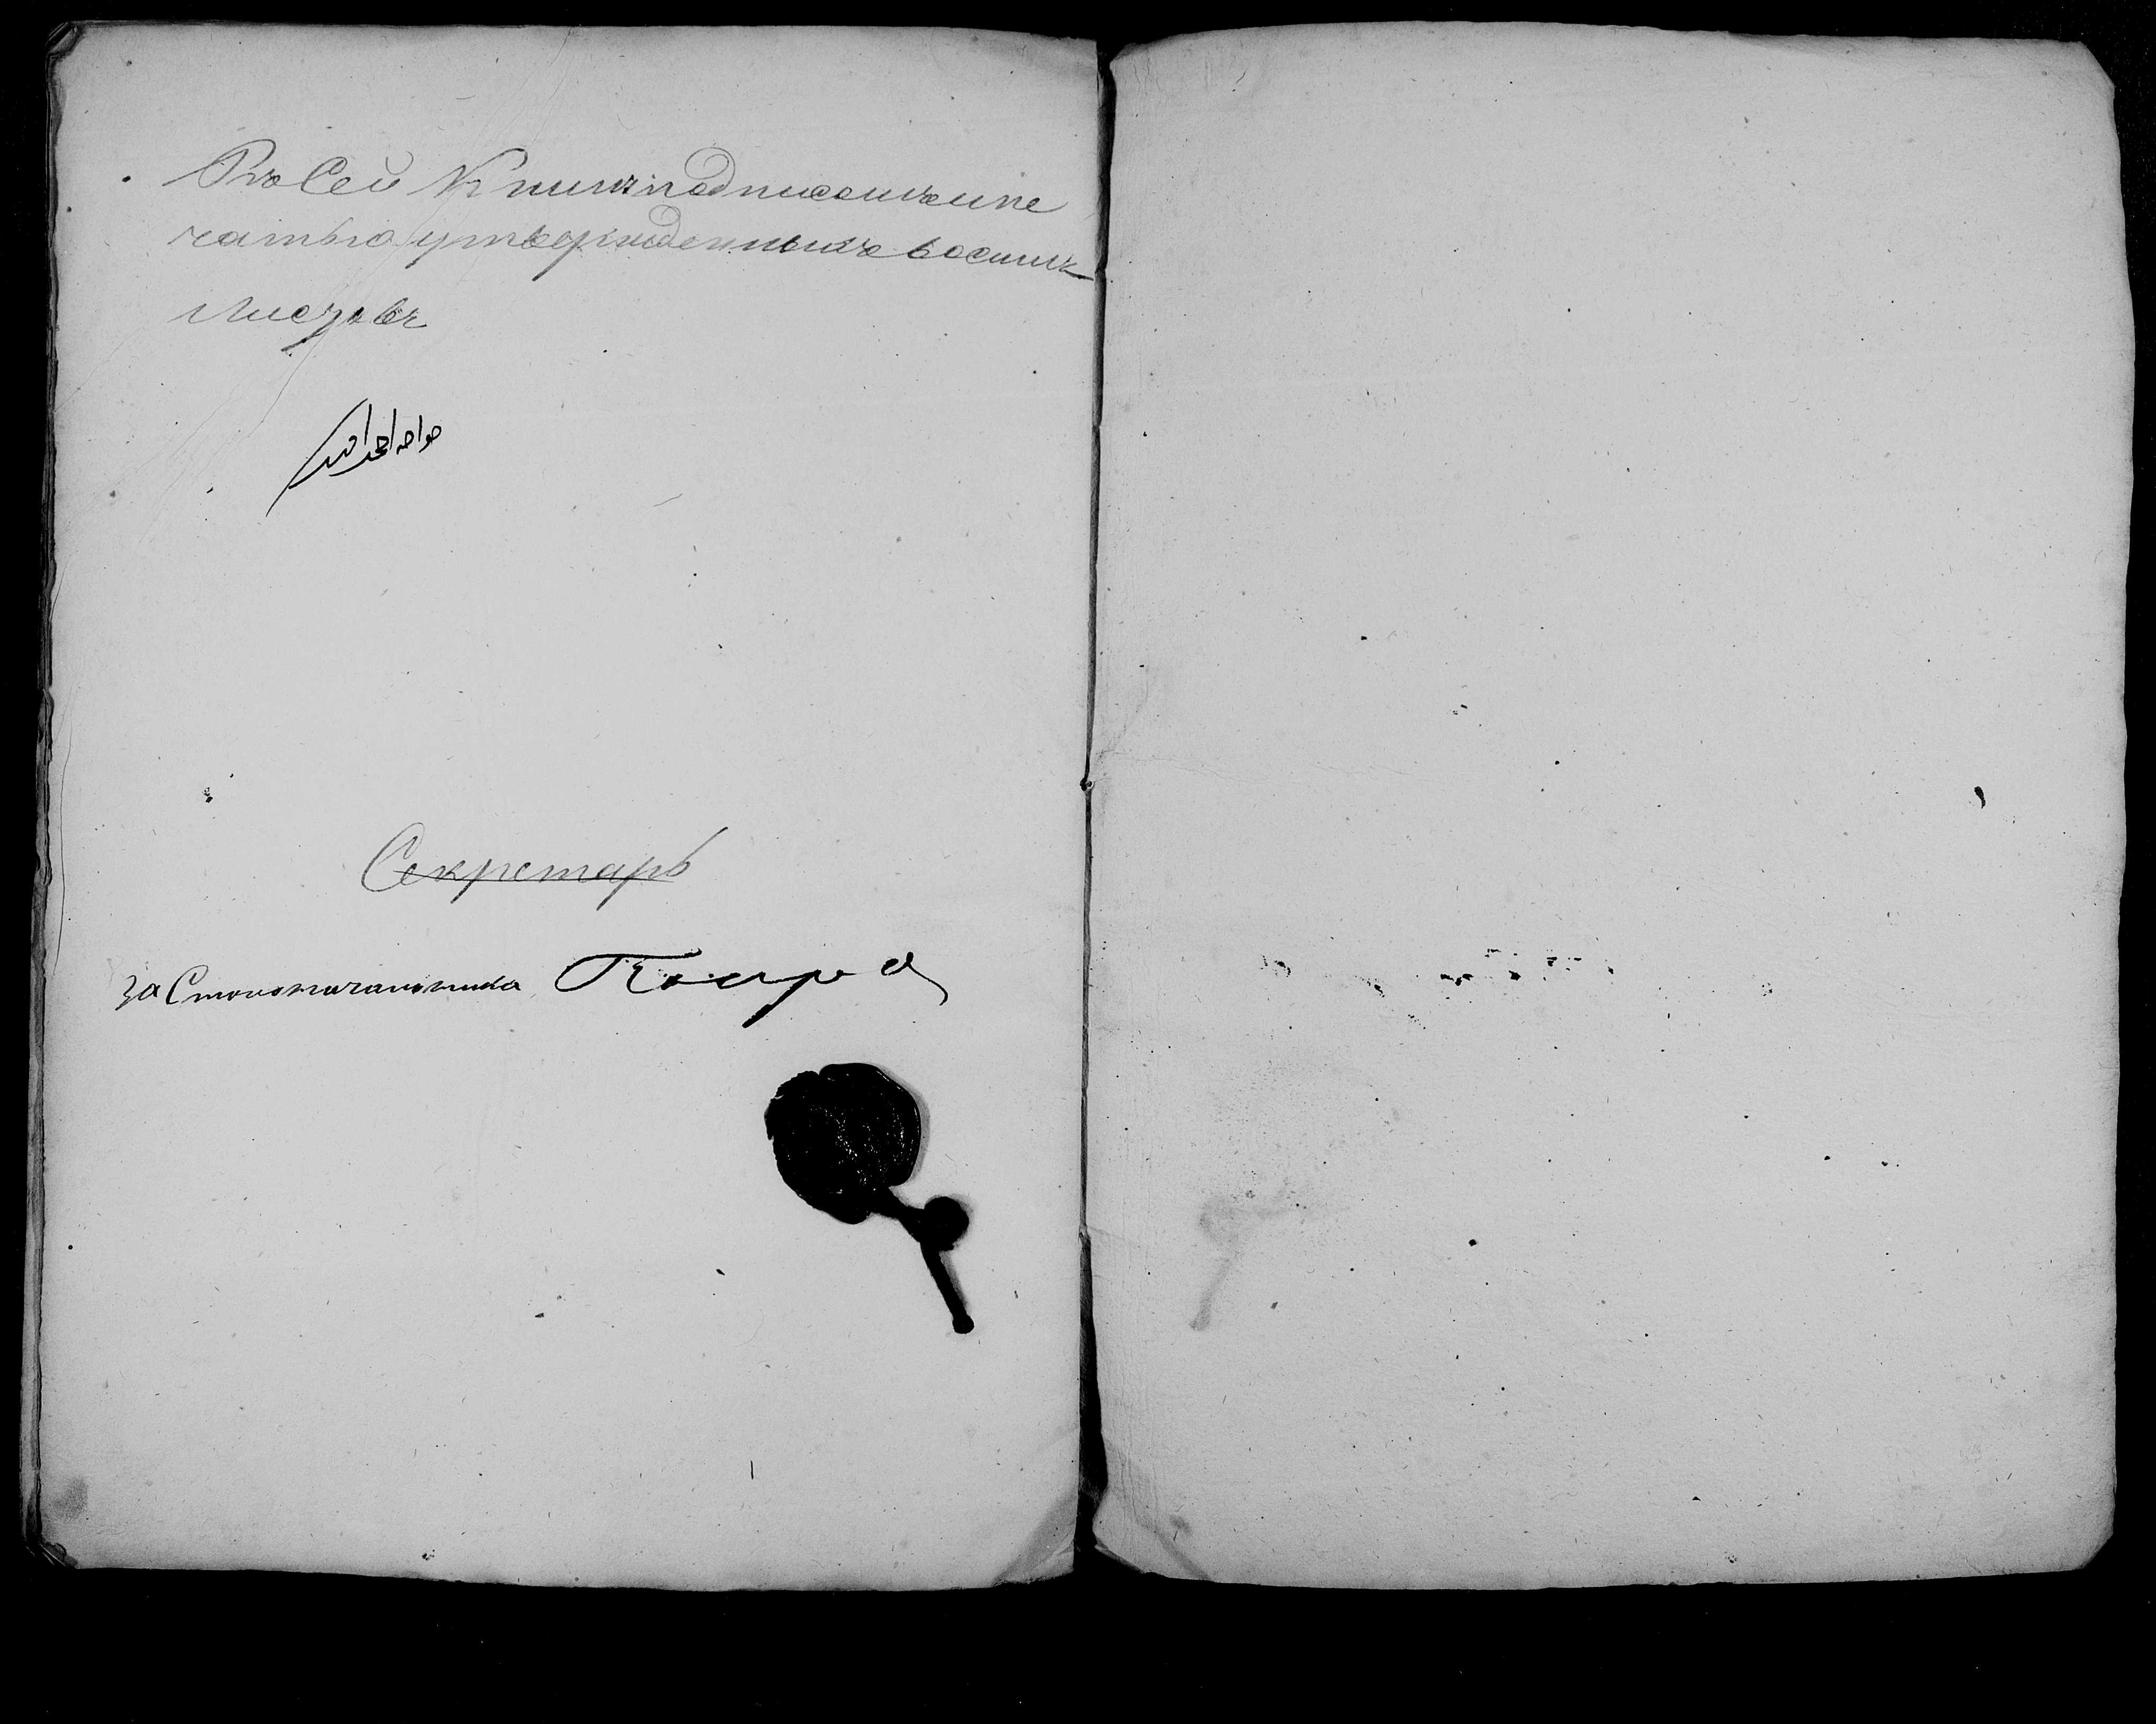 Въ Сей Книгѣ подписомъ и пе
чатью утвержденныхъ восимь
Листовъ
Секретарь
За Столоначальника